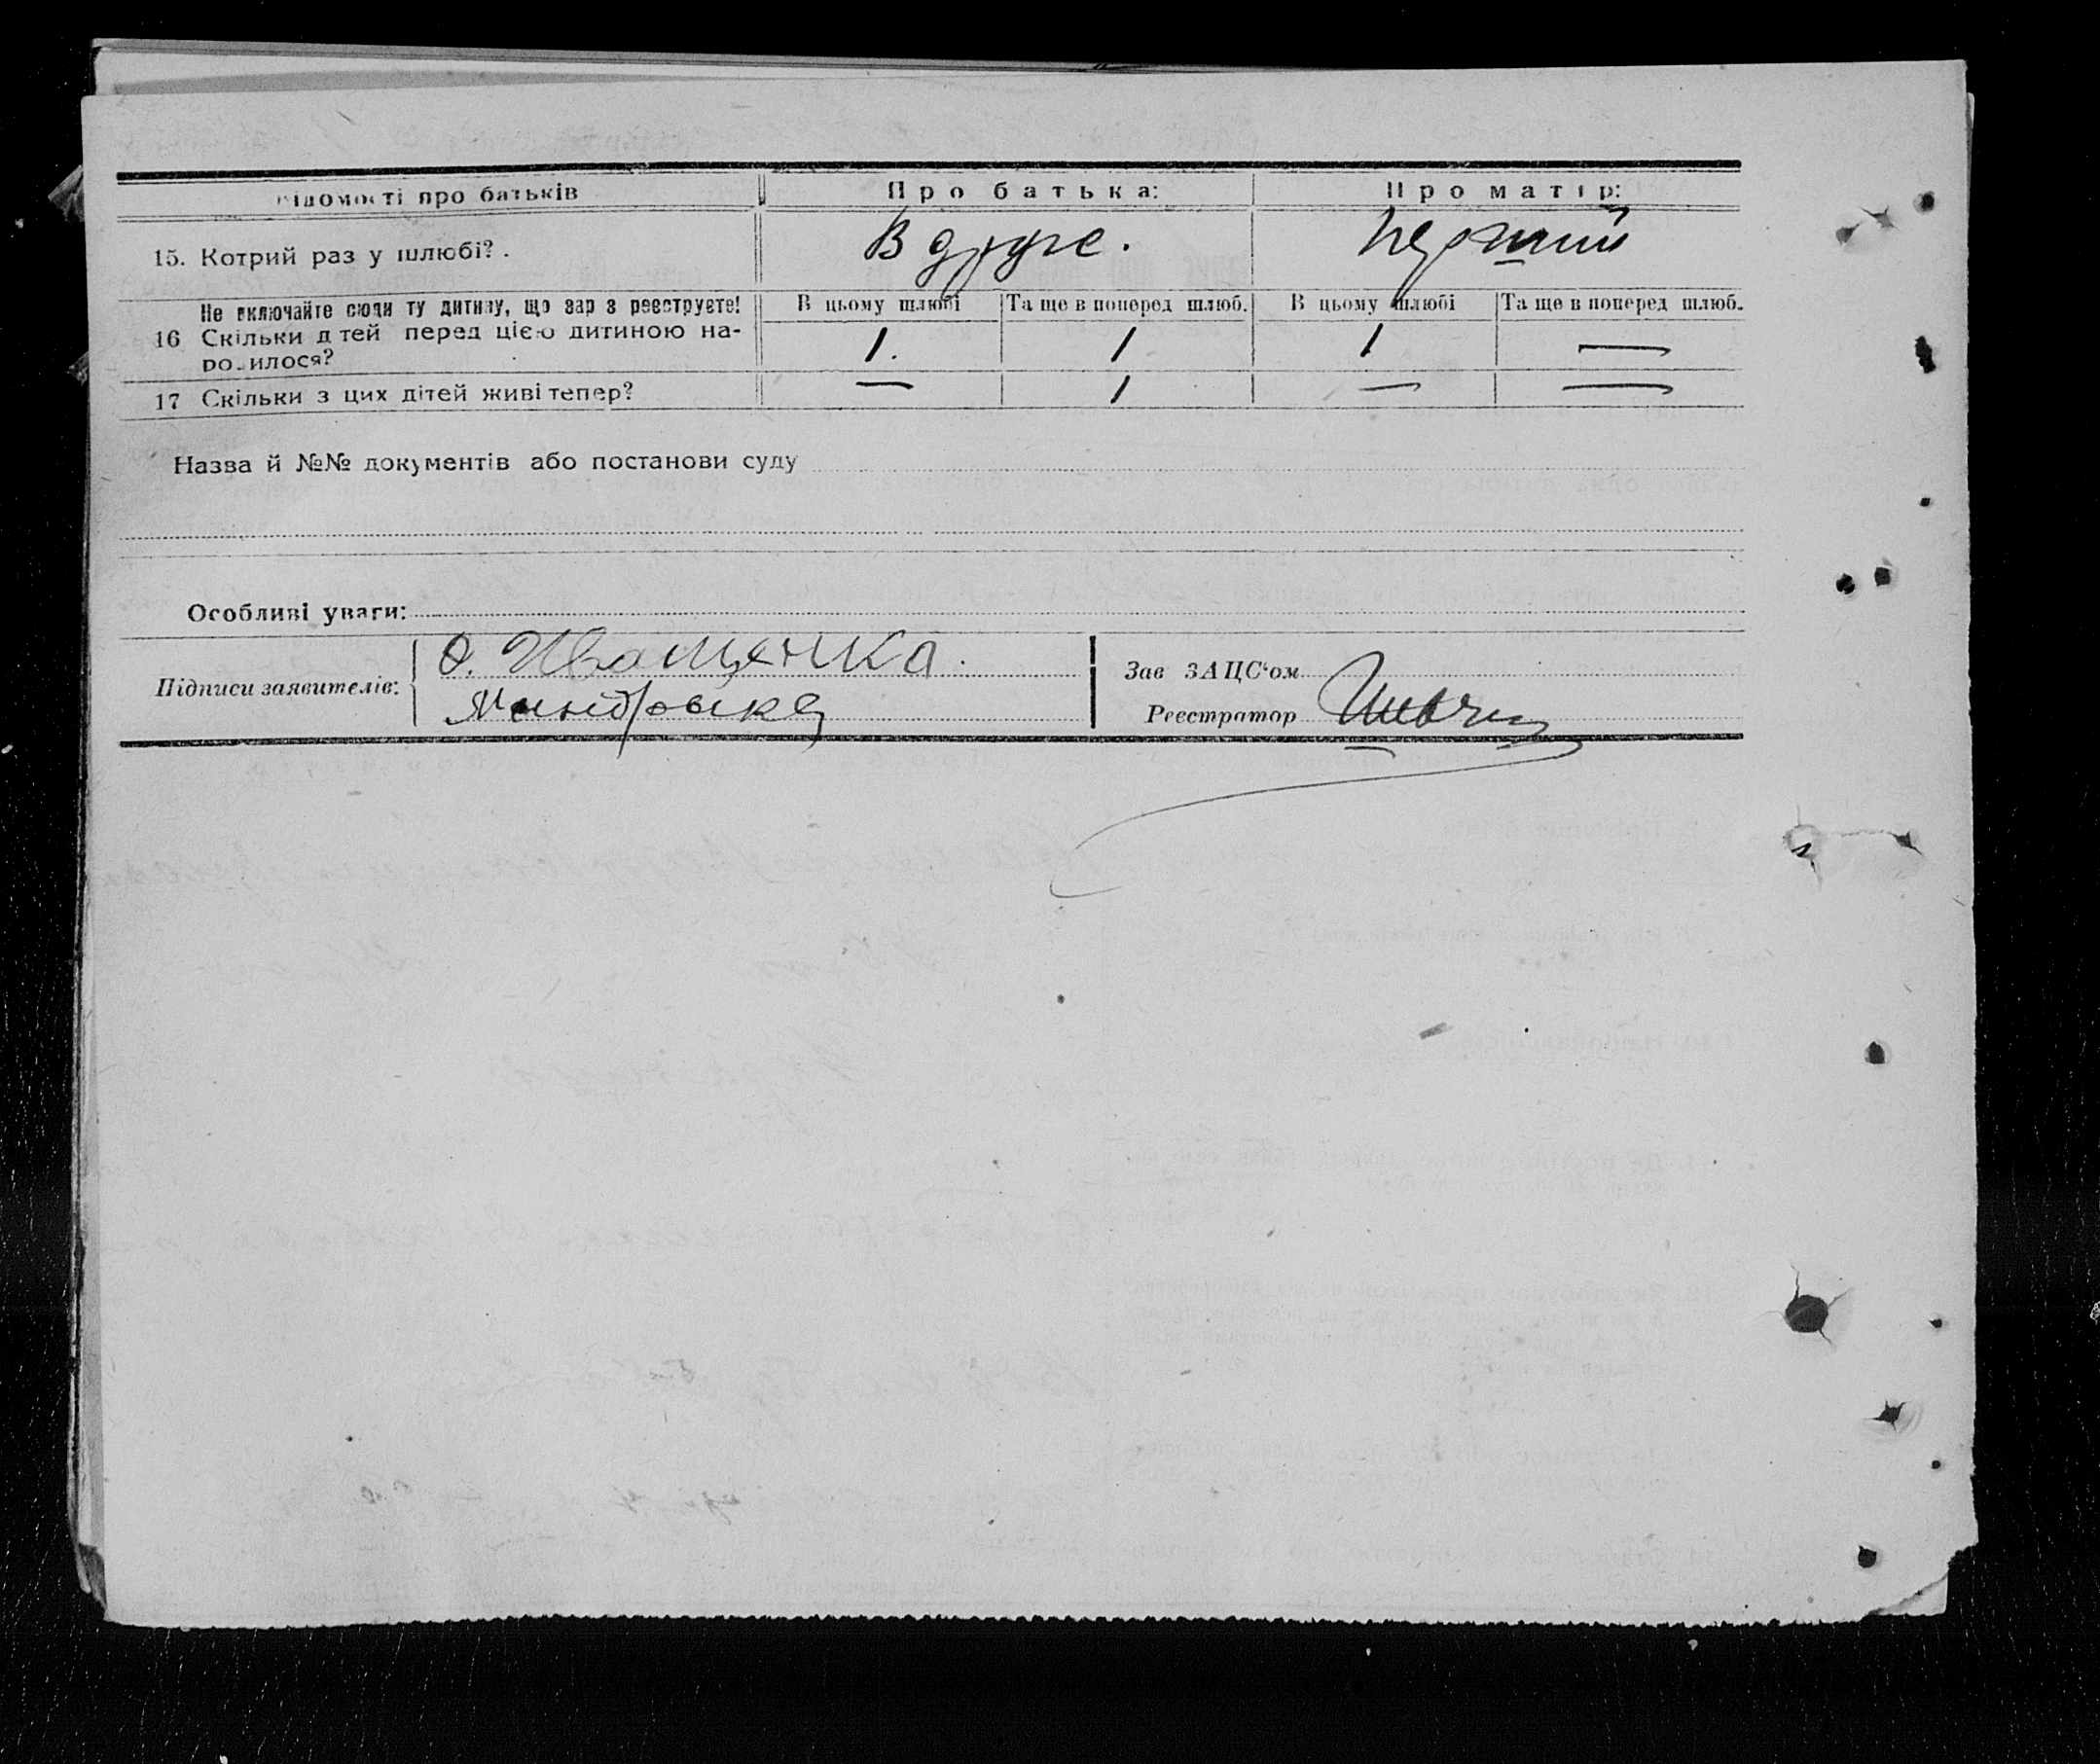 відомості про батьків Про батька: Про матір:
15. Котрий раз у шлюбі? . В друге. перший
Не включайте сюди ту дитину, що зар з реєструєте! В цьому шлюбі Та ще в поперед шлюб. В цьому шлюбі Та ще в поперед шлюб.
16 Скільки д тей перед цією дитиною на- 1. 1 1 —
ро илося?
17 Скільки з цих дітей живі тепер? — 1 — —
Назва й №№ документів або постанови суду
Особливі уваги:
Підписи заявителів: О. Иващенка.
Зав ЗАЦС‘ом
Реєстратор